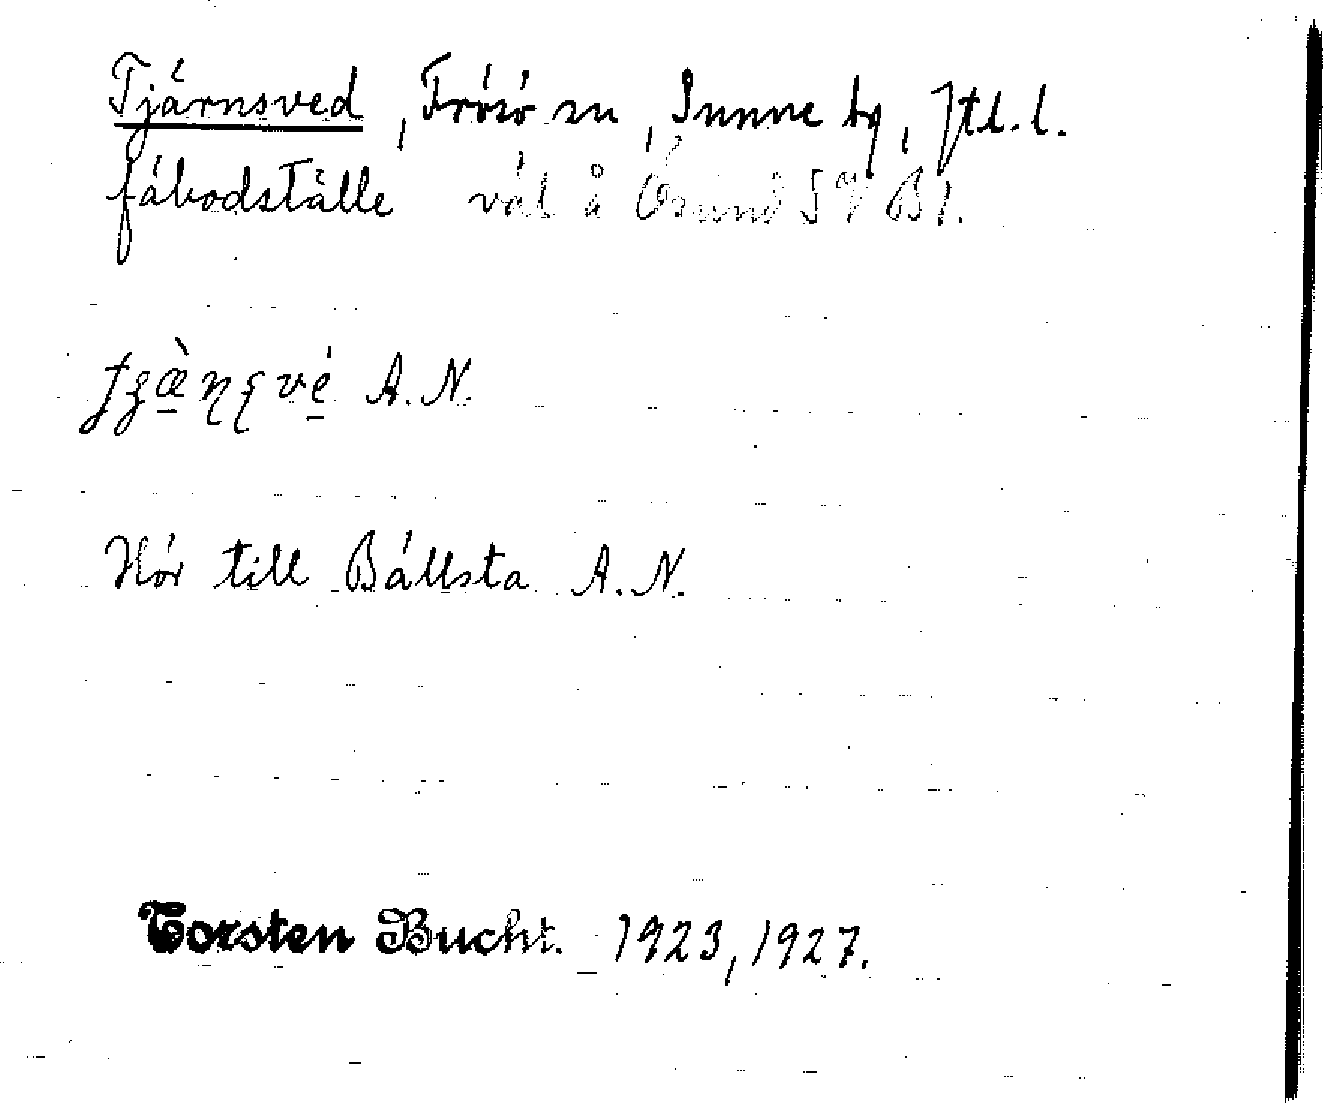 Tjärnsved, Frösö sn, Sunne tg, Jtl. l.
fäbodställe väl å Ösund SV Bl.
A. N.
Hör till Bällsta A. N.
Torsten Bucht. 1923, 1927.